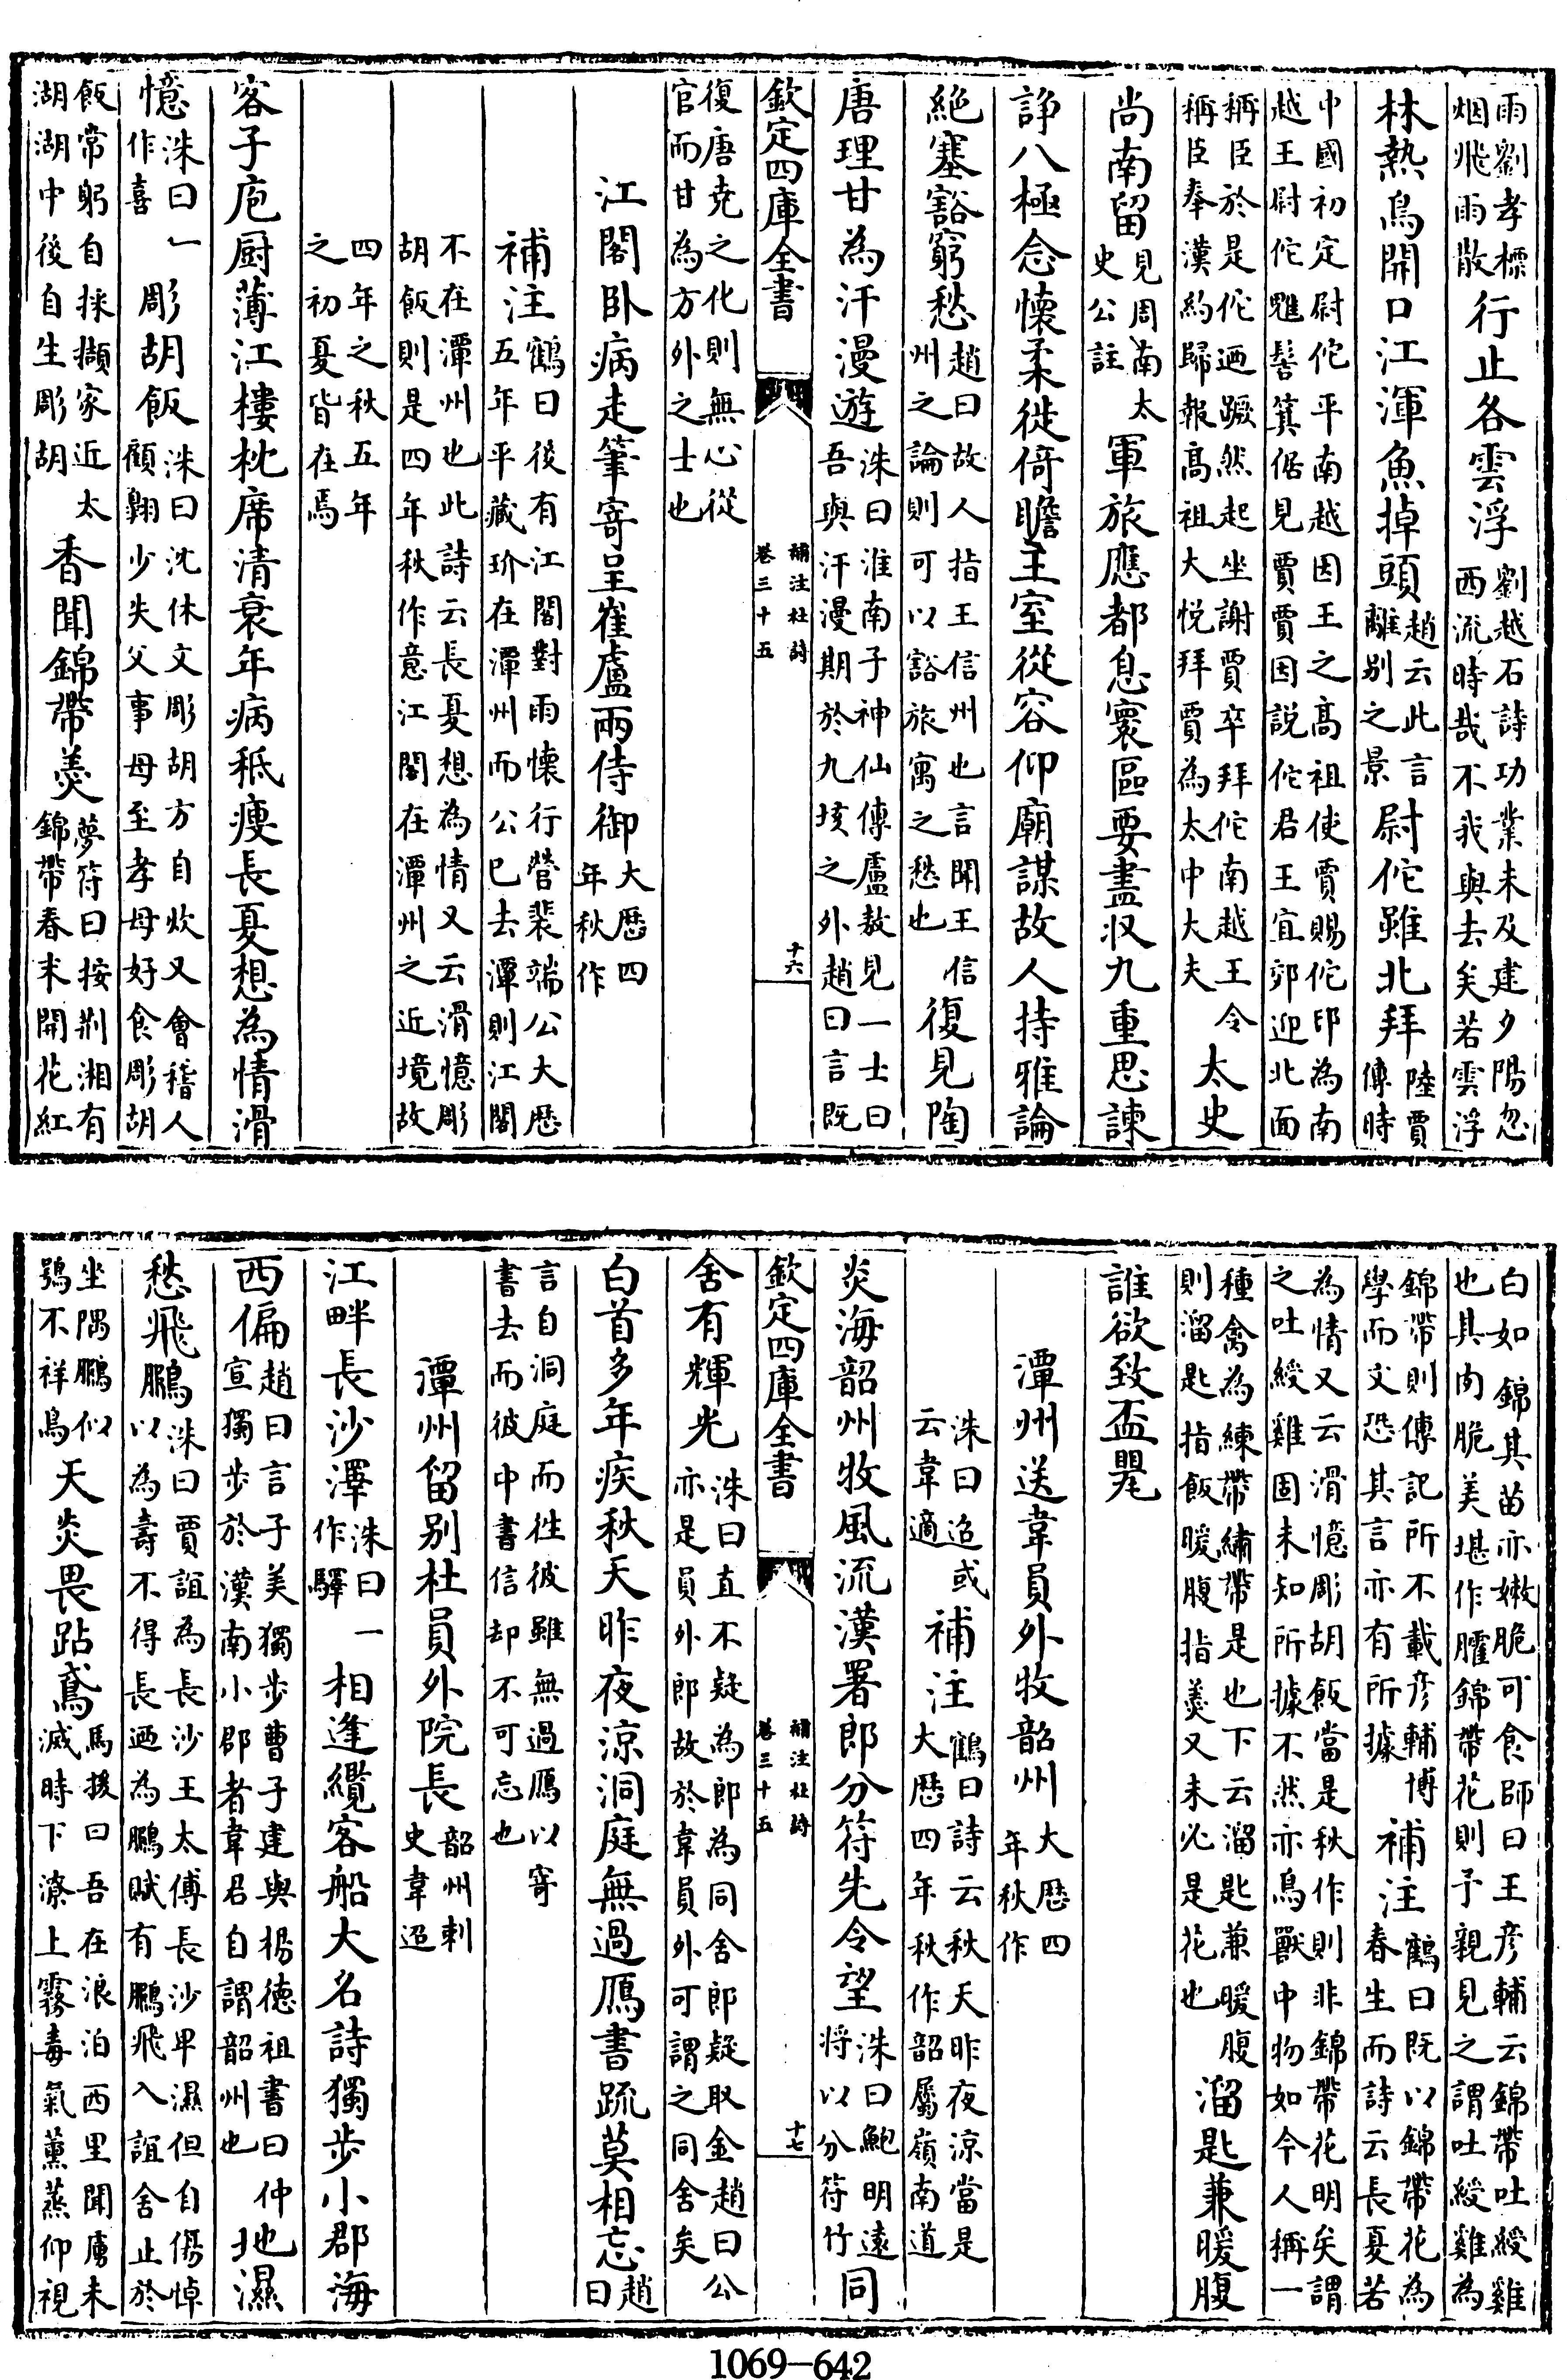 雨劉孝標烟飛雨散行止各雲浮劉越石詩功業未及建夕陽忽西流時哉不我與去矣若雲浮
林熱鳥開口江渾魚掉頭趙云此言離别之景尉佗雖北拜陸賈傳時
中國初定尉佗平南越因王之髙祖使賈賜佗印為南越王尉佗魋髻箕倨見賈賈因說佗君王宜郊迎北面
稱臣於是佗迺蹶然起坐謝賈卒拜佗南越王令稱臣奉漢約歸報髙祖大悦拜賈為太中大夫太史
尚南留見周南太史公註軍旅應都息寰區要盡收九重思諫
諍八極念懷柔徙倚瞻王室從容仰廟謀故人持雅論
絶塞豁窮愁趙曰故人指王信州也言聞王信州之論則可以豁旅寓之愁也復見陶
唐理甘為汗漫遊洙曰淮南子神仙傳盧敖見一士曰吾與汗漫期於九垓之外趙曰言既
欽定四庫全書 補注杜詩 卷三十五 十六
復唐堯之化則無心從官而甘為方外之士也
江閣卧病走筆寄呈崔盧兩侍御大厯四年秋作
補注鶴曰後有江閣對雨懷行營裴端公大厯五年平臧玠在潭州而公已去潭則江閣
不在潭州也此詩云長夏想為情又云滑憶彫胡飯則是四年秋作意江閣在潭州之近境故
四年之秋五年之初夏皆在焉
客子庖厨薄江樓枕席清衰年病秪瘦長夏想為情滑
憶洙曰一作喜彫胡飯洙曰沈休文彫胡方自炊又會稽人顧翱少失父事母至孝母好食彫胡
飯常躬自採擷家近太湖湖中後自生彫胡香聞錦帶羮夢符曰按荆湘有錦帶春末開花紅
白如錦其苗亦嫩脆可食師曰王彦輔云錦帶吐綬雞也其肉脆美堪作臛錦帶花則予親見之謂吐綬雞為
錦帶則傳記所不載彦輔博學而文恐其言亦有所據補注鶴曰既以錦帶花為春生而詩云長夏若
為情又云滑憶彫胡飯當是秋作則非錦帶花明矣謂之吐綬雞固未知所據不然亦鳥獸中物如今人稱一
種禽為練帶繡帶是也下云溜匙兼暖腹則溜匙指飯暖腹指羮又未必是花也溜匙兼暖腹
誰欲致盃罌
潭州送韋員外牧韶州大厯四年秋作
洙曰迢或云韋適補注鶴曰詩云秋天昨夜涼當是大厯四年秋作韶屬嶺南道
炎海韶州牧風流漢署郎分符先令望洙曰鮑明遠將以分符竹同
欽定四庫全書 補注杜詩 卷三十五 十七
舍有輝光洙曰直不疑為郎為同舍郎疑取金趙曰公亦是員外郎故於韋員外可謂之同舍矣
白首多年疾秋天昨夜涼洞庭無過鴈書疏莫相忘趙曰
言自洞庭而徃彼雖無過鴈以寄書去而彼中書信却不可忘也
潭州留别杜員外院長韶州刺史韋迢
江畔長沙澤洙曰一作驛相逢纜客船大名詩獨步小郡海
西偏趙曰言子美獨步曹子建與楊德祖書曰仲宣獨步於漢南小郡者韋君自謂韶州也地濕
愁飛鵩洙曰賈誼為長沙王太傅長沙卑濕但自傷悼以為壽不得長迺為鵩賦有鵩飛入誼舍止於
坐隅鵩似鴞不祥鳥天炎畏跕鳶馬援曰吾在浪泊西里聞虜未滅時下潦上霧毒氣薫蒸仰視
1069—642